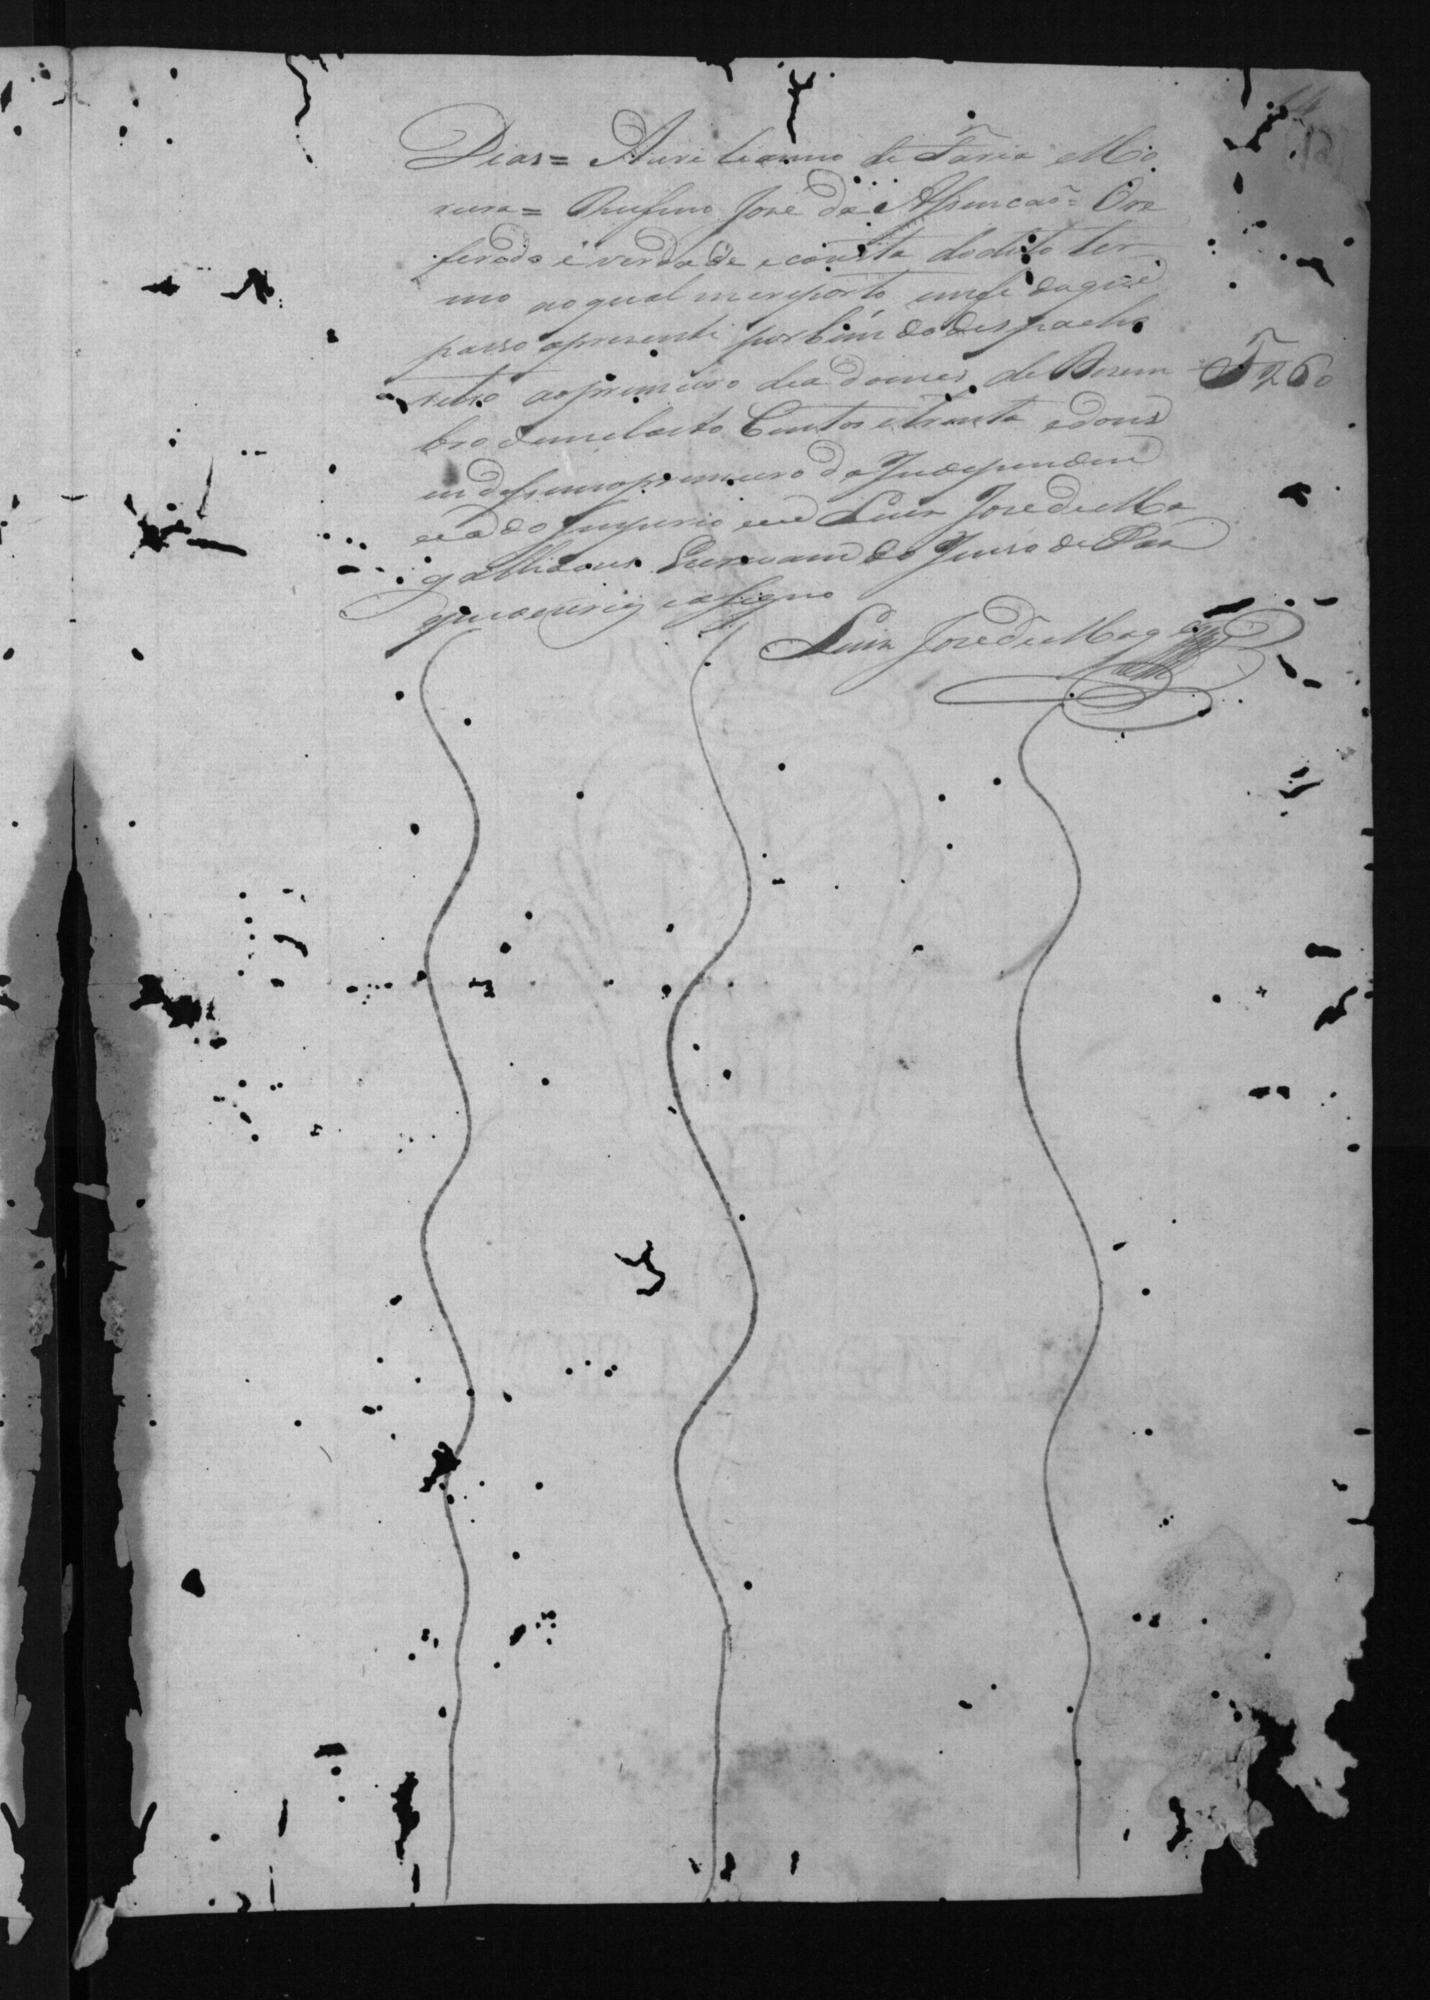 Dias= Aurelianno de Faria Mo
reira= Rufino José da Asumcaõ= Ore
ferido é verdade econsta doditoter
mo aoqual mereporto emfé daque
passo apresente por bem do despacho
retro aoprimeiro dia domes de Dezem
bro demileoito Centos etrinta edous
undesimoprimeiro da Independen
cia edo Imperio eu Luiz José de Ma
galhaens Escrivam do Juizo de Paz
queescrevy easigno
Luiz José de Mag
$960